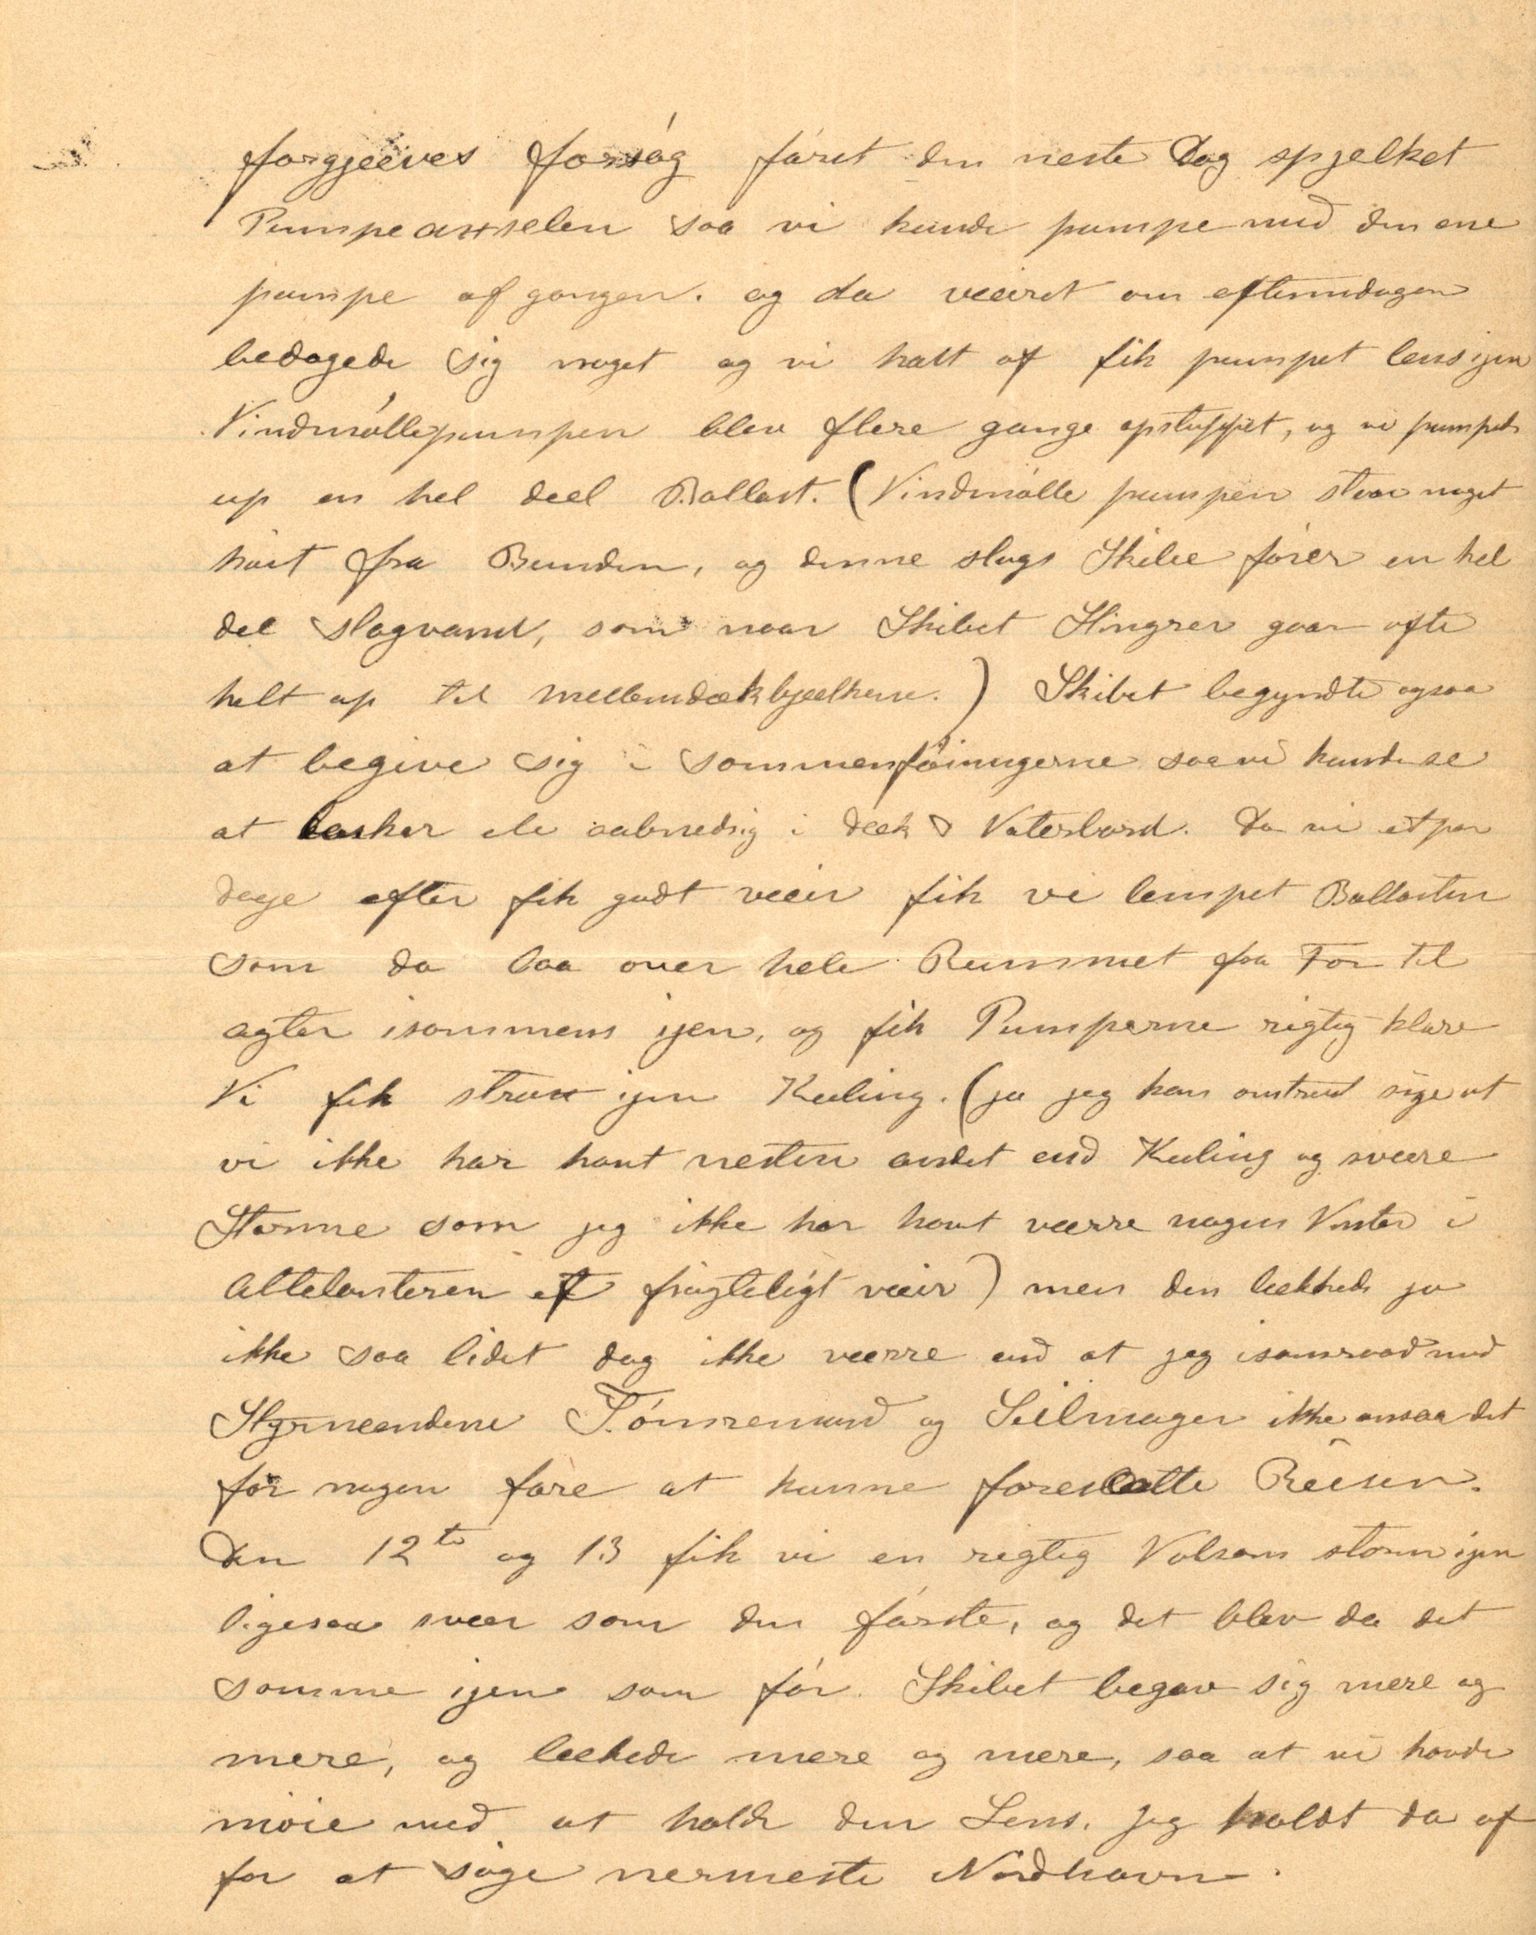 forgjeeves forsög först den neste Dag spjelket
Pumpeaxselen saa vi kunde pumpe med den ene
pumpe af gangen. og da veeiret om eftermidagen
bedagede sig noget og vi halt af fik pumpet lens igen
Vindmöllepumpen blev flere gange opstuppet, og vi pumpede
up en hel deel Ballast. (Vindmölle pumpen staar noget
höit fra Bunden, og denne slags Skibe förer en hel
del slagvand, som naar Skibet Slingrer gaar ofte
helt op til mellemdækbjeelkerne.) Skibet begyndte ogsaa
at begive sig i sammenföiningerne saa vi kunde se
at lasker ele aabnedsig i deek & Vaterbord. Da vi et par
dage efter fik godt veeir fik vi lempet Ballasten
som da laa over hele Rummet fra For til
agter isammens igen, og fik Pumperne rigtig klare
Vi fik strax igen Kuling. (ja jeg kan omtrent sige at
vi ikke har havt nesten andet end Kuling og sveere
Storme som jeg ikke har havt værre nogen Vinter i
Attelanteren et frygteligt veeir) men den lækkede jo
ikke saa lidet dog ikke veerre end at jeg isamraad med
Styrmeendene Tömremand og Seilmager ikke ansaa det
for nogen fare at kunne foresætte Reisen.
Den 12te og 13 fik vi en rigtig Volsom storm igen
ligesaa sveer som den förste, og det blev da det
samme igen som för. Skibet begav sig mere og
mere, og leekede mere og mere, saa at vi havde
möie med at holde den Lens. Jeg holdt da af
for at söge nermeste Nödhavn.